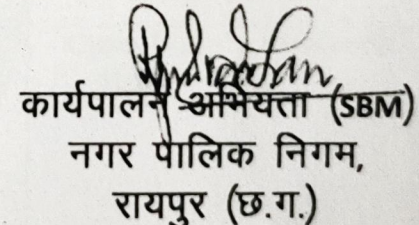 कार्यपालन अभियंता (SBM)
नगर पालिक निगम,
रायपुर (छ.ग.)